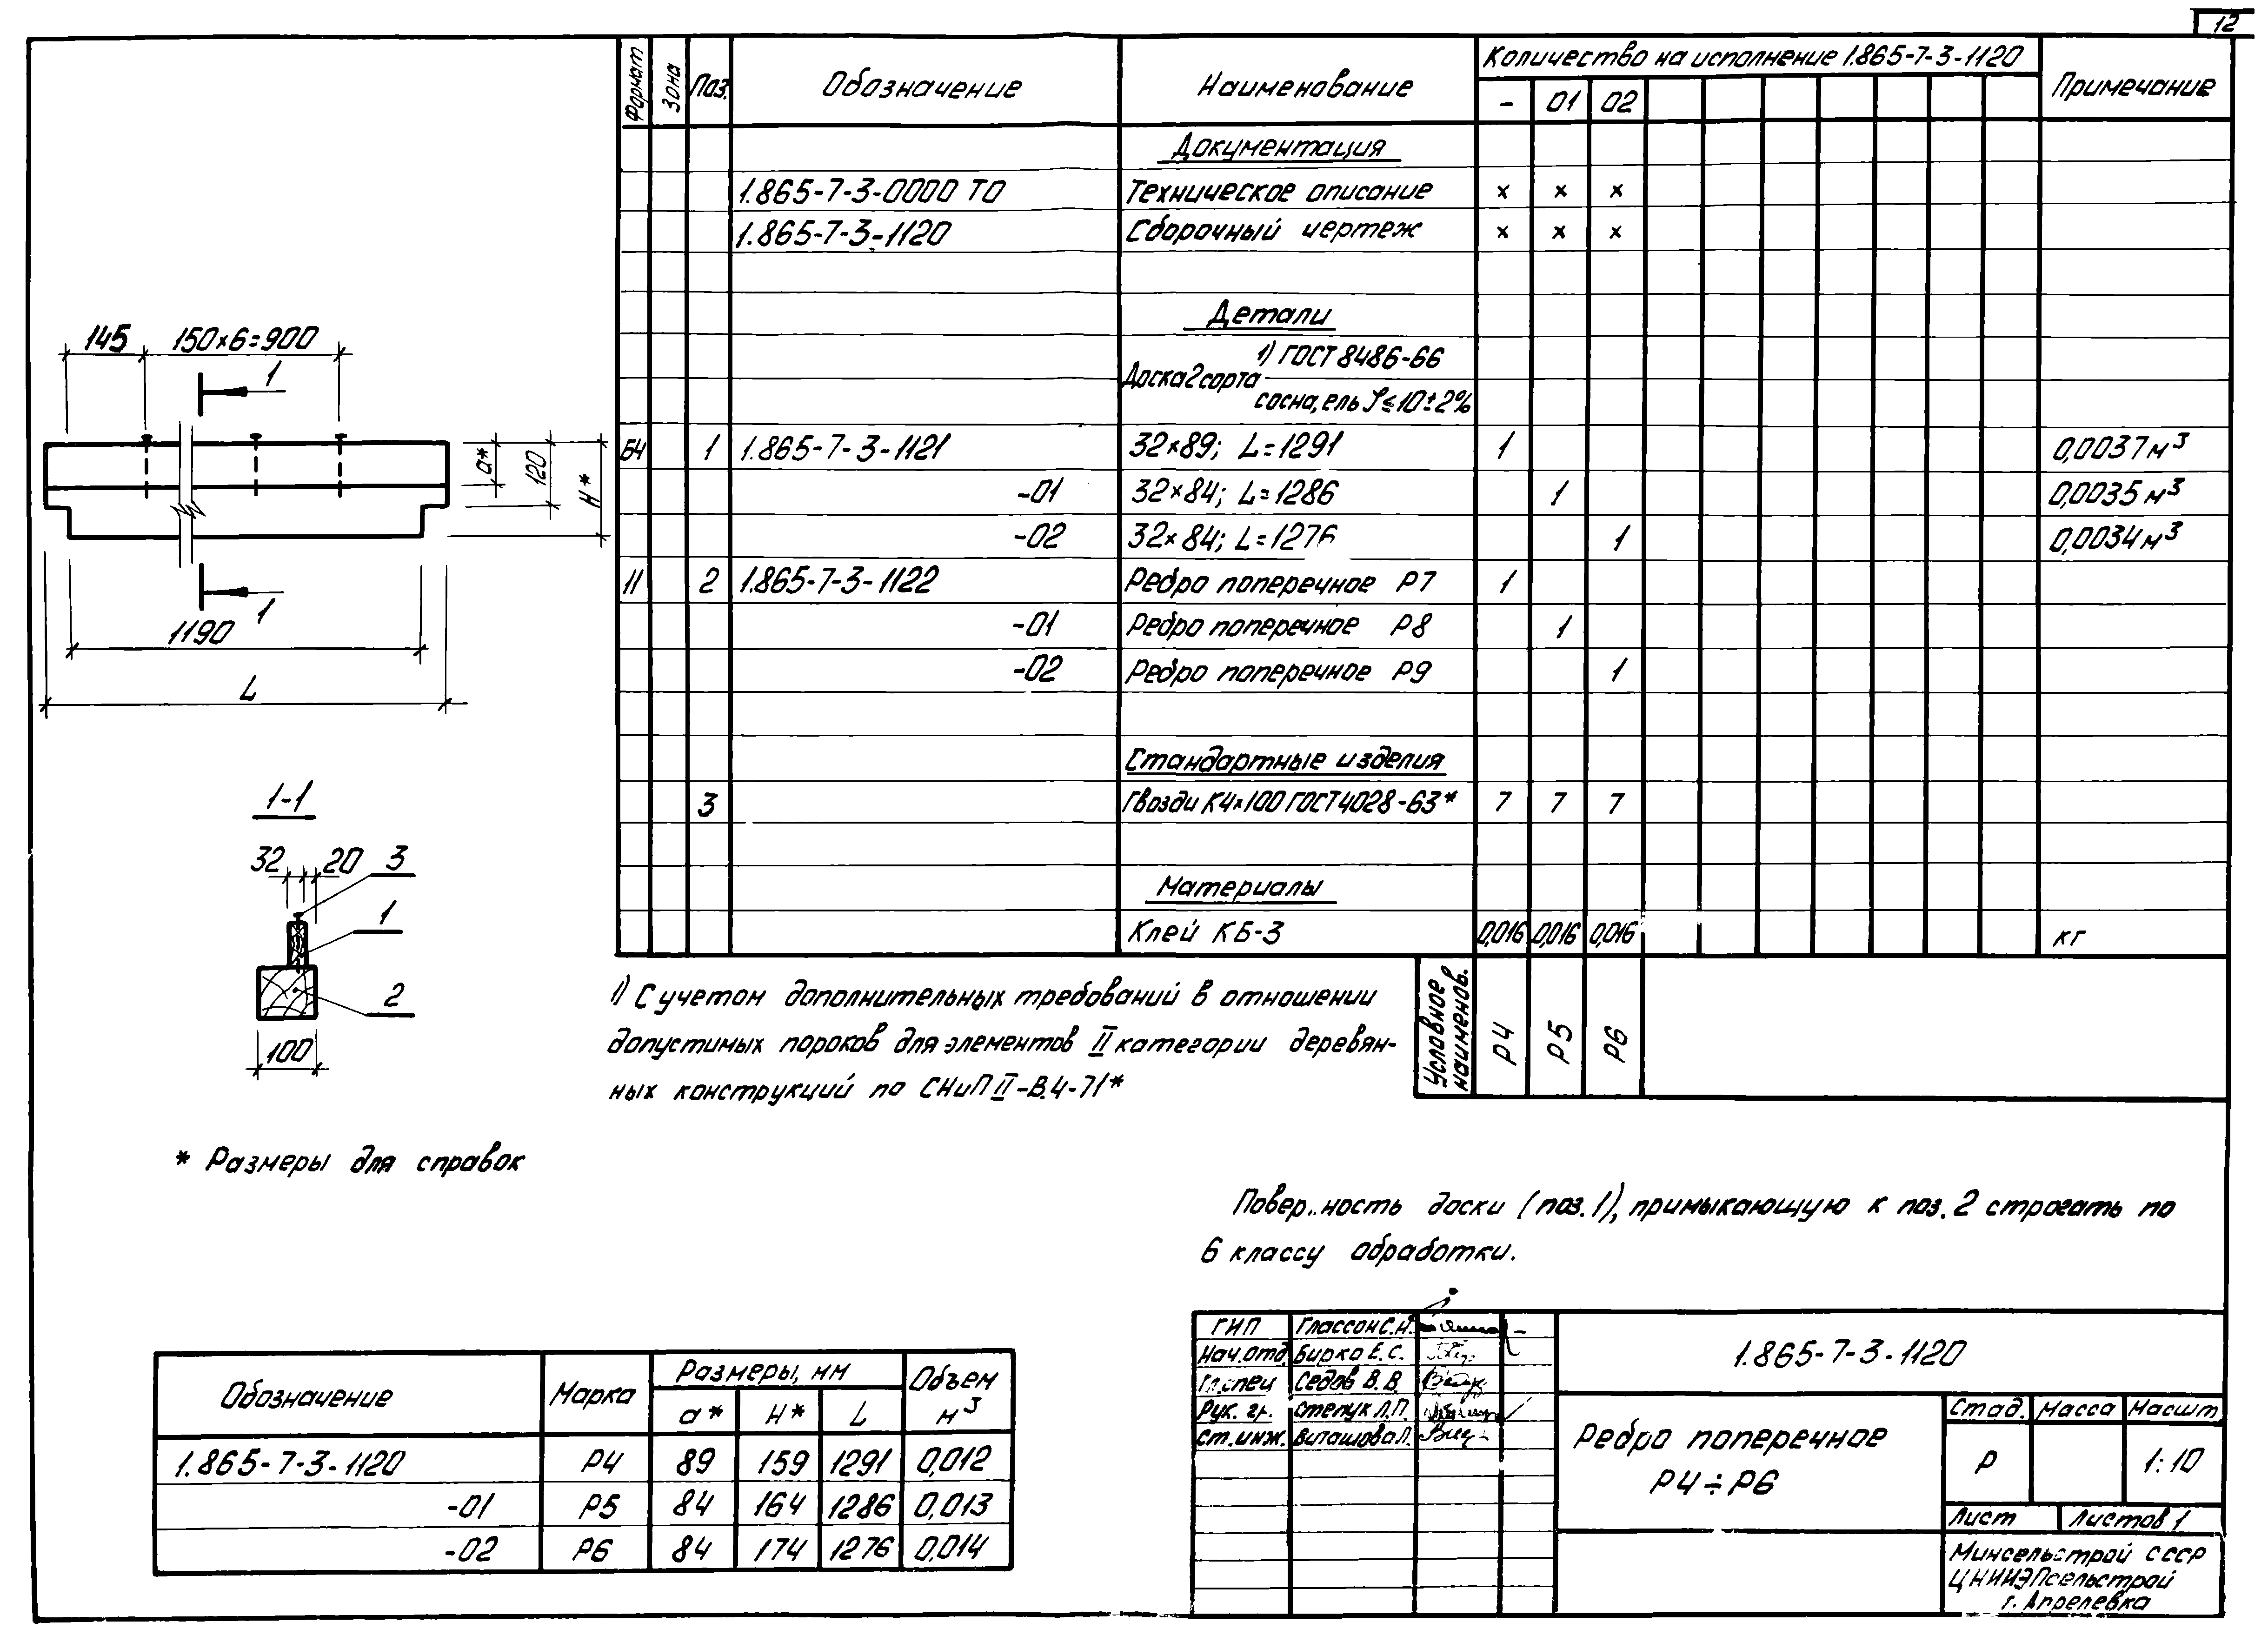 12
Формат Зона Поз. Обозначение Наименование Количество на исполнение 1.865-7-3-1120 Примечание
- 01 02
Документация
1.865-7-3-0000 ТО Техническое описание × × ×
1.865-7-3-1120 Сборочный чертеж × × ×
Детали
1) ГОСТ 8486-66
Доска 2 сорта
сосна, ель
≤10±2%
Б4 1 1.865-7-3-1121 32×89; L=1291 1 0,0037 м³
-01 32×84; L=1286 1 0,0035 м³
-02 32×84; L=1276 1 0,0034 м³
11 2 1.865-7-3-1122 Ребро поперечное Р7 1
-01 Ребро поперечное Р8 1
-02 Ребро поперечное Р9 1
Стандартные изделия
3 Гвозди К4×100 ГОСТ 4028-63* 7 7 7
Материалы
Клей КБ-3 0,016 0,016 0,016 кг
Условное наименов. Р4 Р5 Р6
145 150×6=900
1
a* 120 H*
1
1190
L
1-1
32 20 3
1
2
100
1) С учетом дополнительных требований в отношении
допустимых пороков для элементов II категории деревян-
ных конструкций по СНиП II-В.4-71*
* Размеры для справок
доски (поз.1), примыкающую к поз. 2 строгать по
6 классу обработки.
Обозначение Марка Размеры, мм Объем м³
a* H* L
1.865-7-3-1120 Р4 89 159 1291 0,012
-01 Р5 84 164 1286 0,013
-02 Р6 84 174 1276 0,014
ГИП Глассон С.Н.
Нач.отд. Бирко Е.С.
Гл.спец Седов В.В.
Рук. гр. Степук Л.П.
Ст.инж. Виташова Л.
1.865-7-3-1120
Ребро поперечное
Р4÷Р6
Стад. Масса Масшт
Р 1:10
Лист Листов 1
Минсельстрой СССР
ЦНИИЭПсельстрой
г. Апрелевка